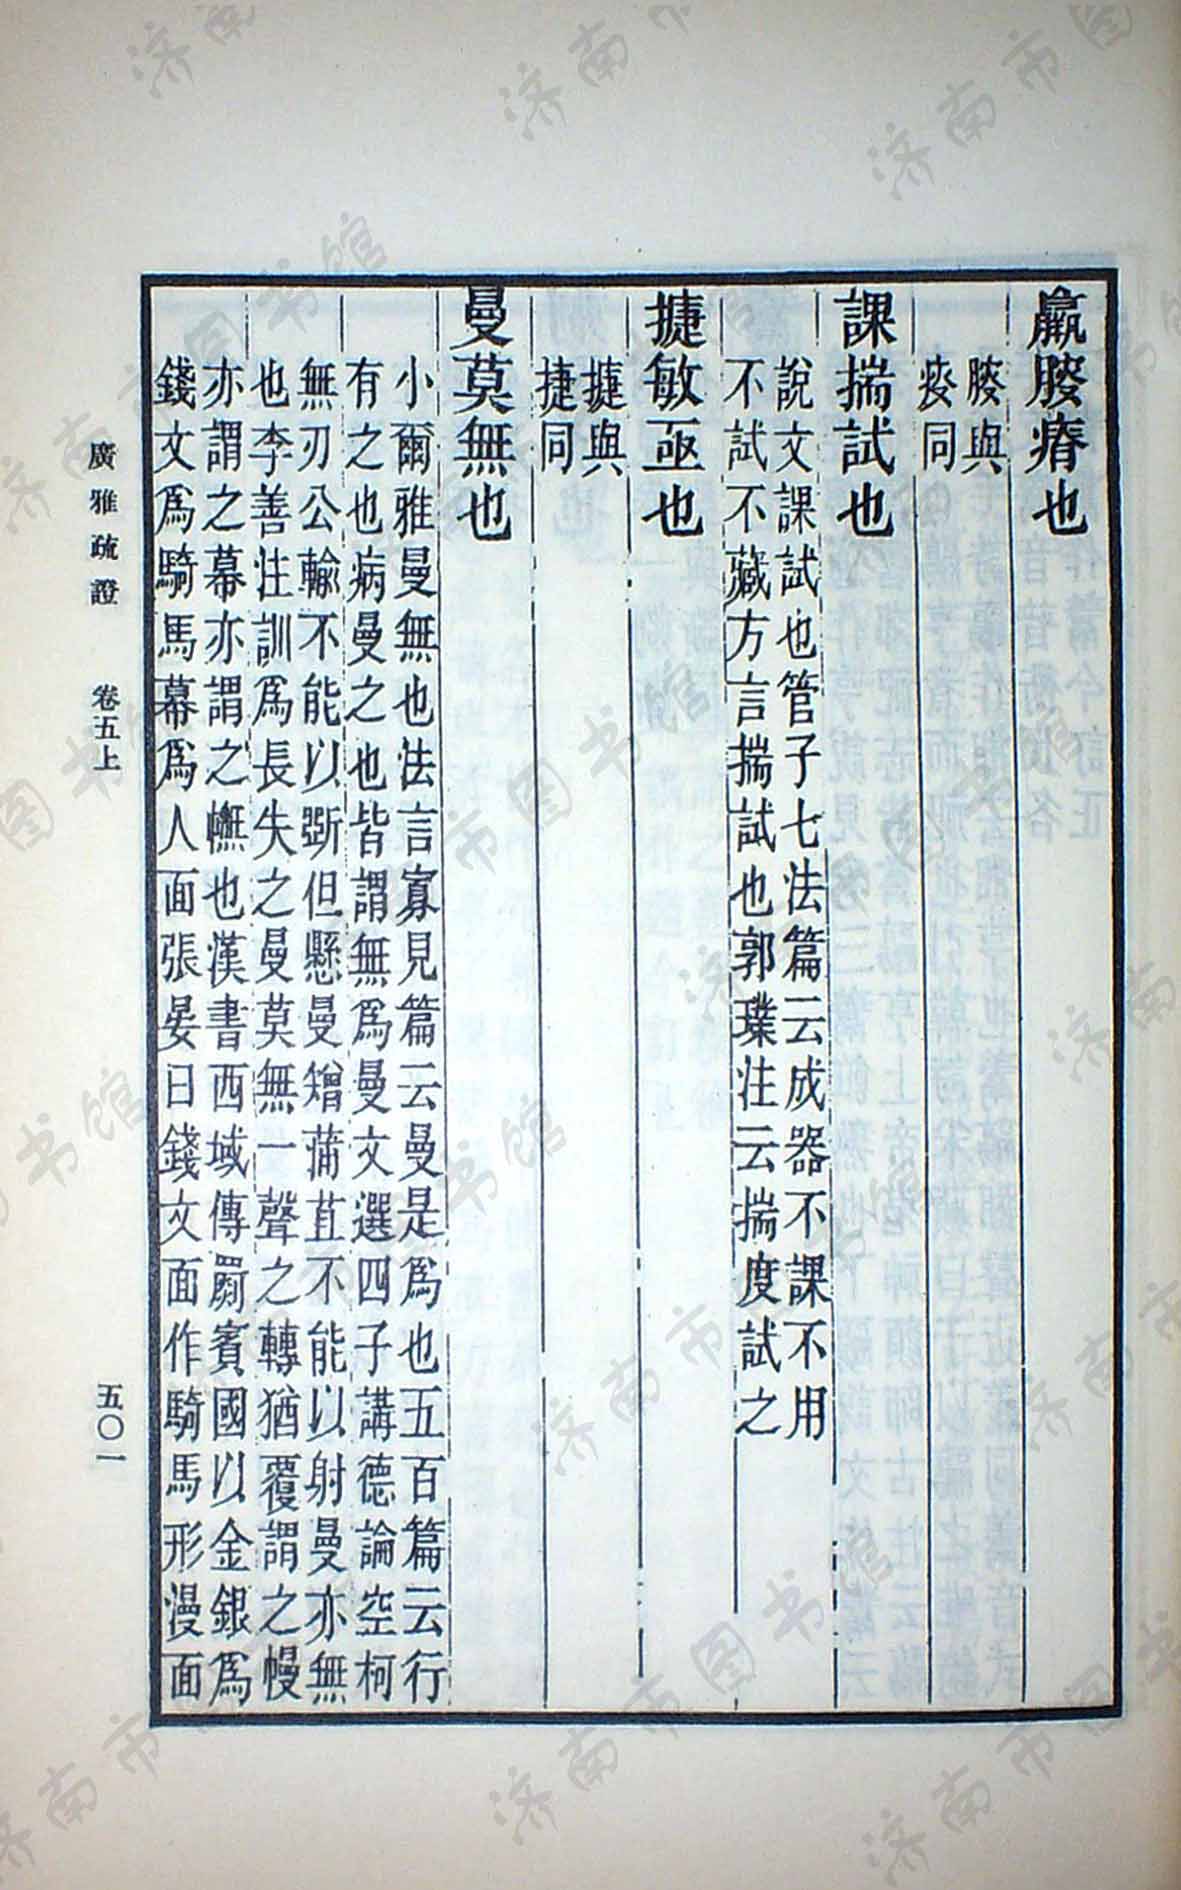 羸朡瘠也
朡與
㾭同
課揣試也
說文課試也管子七法篇云成器不課不用
不試不藏方言揣試也郭璞注云揣度試之
㨗敏亟也
㨗與
捷同
曼莫無也
小爾雅曼無也法言寡見篇云曼是爲也五百篇云行
有之也病曼之也皆謂無爲曼文選四子講德論空柯
無刃公輸不能以斲但懸曼矰蒲苴不能以射曼亦無
也李善注訓爲長失之曼莫無一聲之轉猶覆謂之幔
亦謂之幕亦謂之幠也漢書西域傳罽賓國以金銀爲
錢文爲騎馬幕爲人面張晏曰錢文面作騎馬形漫面
廣雅疏證 卷五上
五〇一
济南市图书馆